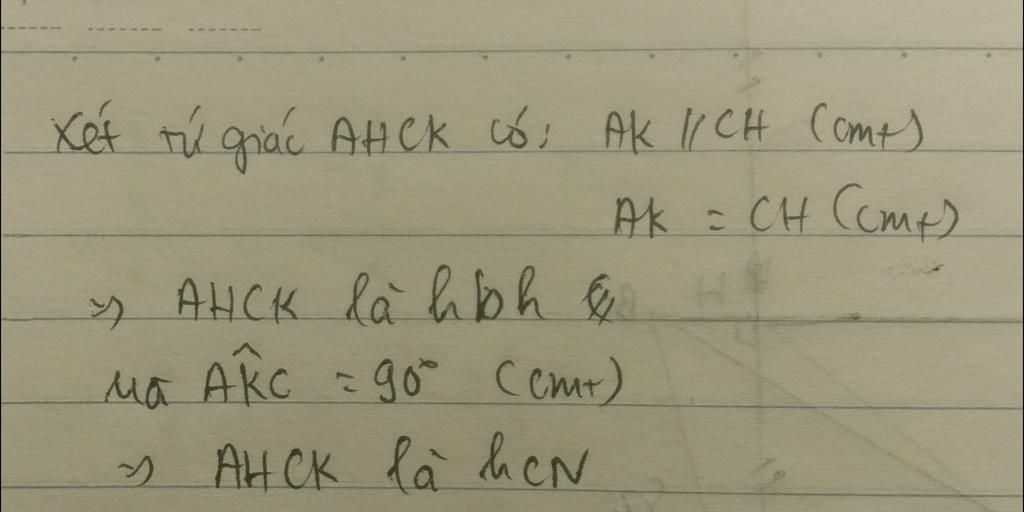 Xét tứ giác AHCK có: AK // CH (cmt)
AK = CH (cmt)
=> AHCK là hbh
mà AK̂C = 90° (cmt)
=> AHCK là hCN